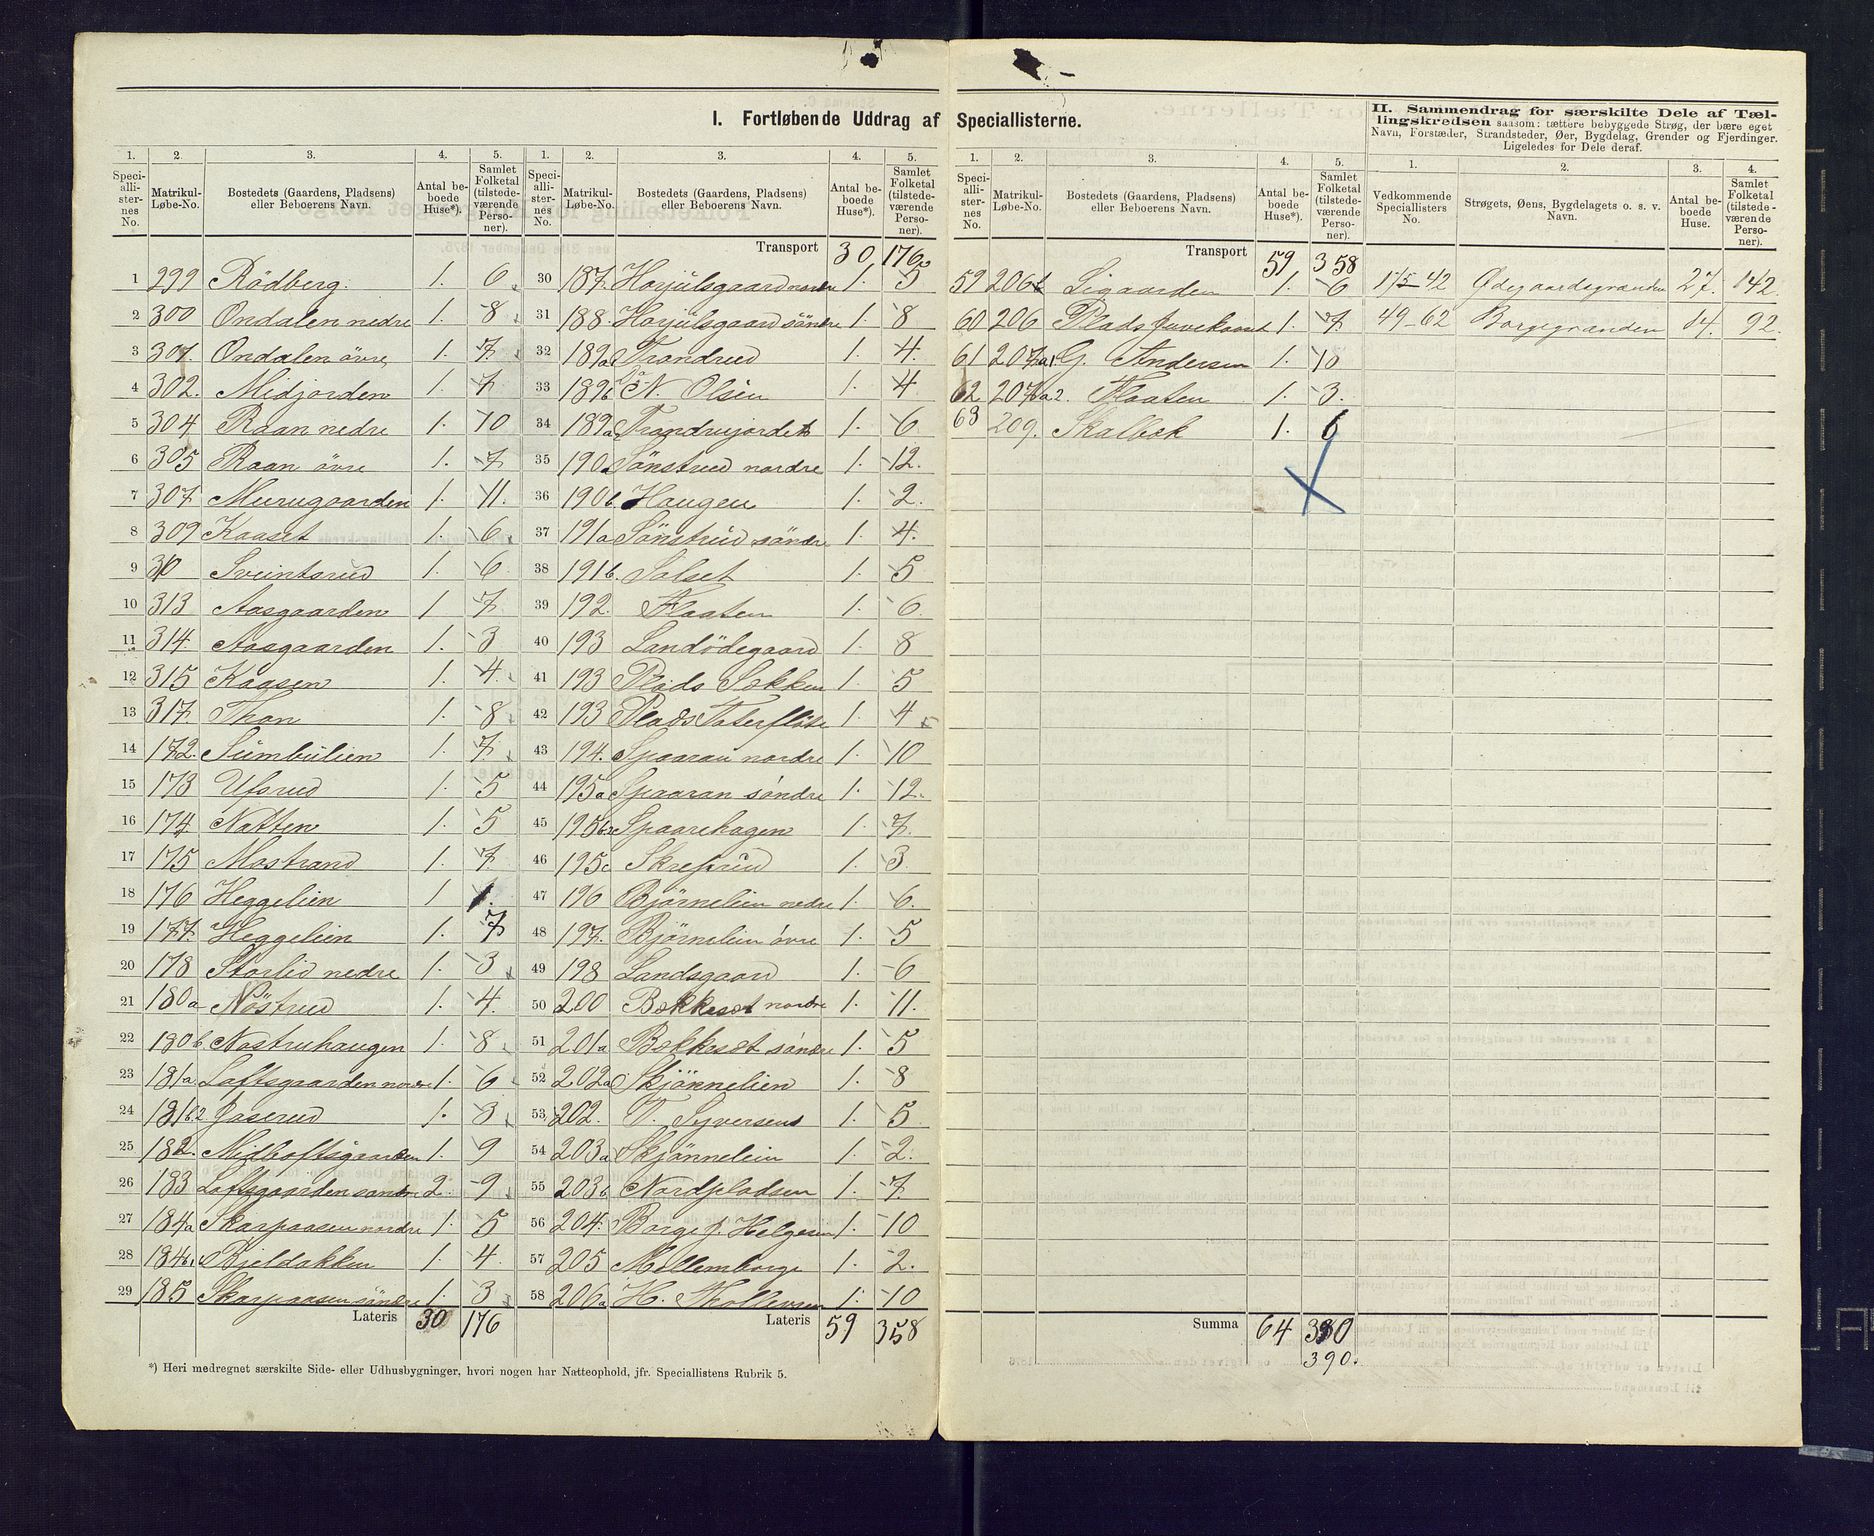 I. Fortløbende Uddrag af Speciallisterne.
II. Sammendrag for særskilte Dele af Tæl-
lingskredsen saasom: tættere bebyggede Strøg, der bære eget
Navn, Forstæder, Strandsteder, Øer, Bygdelag, Grender og Fjerdinger.
Ligeledes for Dele deraf.
1. 2. 3. 4. 5.
Speci-alli-ster-nes No. Matrikul-Løbe-No. Bostedets (Gaardens, Pladsens) eller Beboerens Navn. Antal be-boede Huse*). Samlet Folketal (tilstede-værende Perso-ner).
1 299 Rödberg. 1. 6
2 300 Ondalen nedre 1. 8
3 301 Ondalen övre 1. 7
4 302. Midjorden 1. 7
5 304 Raan nedre 1. 10
6 305 Raan övre 1. 7
7 307 Murugaarden 1. 11.
8 309 Kaaset 1. 6
9 310 Sveintsrud 1. 6
10 313 Aasgaarden 1 7
11 314. Aasgaarden 1. 3
12 315 Kaasen 1. 4.
13 317 Thon 1. 8
14 172. Sumbulien 1. 7
15 173 Ufsrud 1. 5
16 174 Natten 1. 5
17 175 Mostrand 1. 7
18 176 Heggelien 1 1.
19 177. Heggelien 1. 7
20 178 Storlid nedre 1. 3
21 180a Nöstrud 1. 4.
22 180b Nøstruhaugen 1. 8
23 181a Loftsgaarden nordre 1. 6
24 181b2 Jaserud 1. 3
25 182. Midloftsgaarden 1. 9
26 183 Loftsgaarden søndre 2. 9
27 184a Skarpaasen nordre 1. 5
28 184b1 Bjeldakken 1. 4
29 185 Skarpaasen söndre 1. 3
Lateris 30 176
1. 2. 3. 4. 5.
Speci-alli-ster-nes No. Matrikul-Løbe-No. Bostedets (Gaardens, Pladsens) eller Beboerens Navn. Antal be-boede Huse*). Samlet Folketal (tilstede-værende Perso-ner).
Transport 30 176
30 187. Horjulsgaard nordre 1. 5
31 188. Horjulsgaard söndre 1. 8
32 189a Trondrud 1. 4.
33 189b N. Olsen 1. 4
34 189a Trondrujordet 1. 6
35 190a Sönstrud nordre 1. 12.
36 190b Haugen 1. 2.
37 191a Sönstrud söndre 1. 4.
38 191b. Solset 1. 5
39 192. Flaaten 1. 6.
40 193 Landödegaard 1. 8
41 193 Plads Sækken 1. 5
42 193 Plads Taterflöte 1. 4
43 194. Spaaran nordre 1. 10
44 195a Spaaran söndre 1. 12.
45 195b Spaarehagen 1. 7.
46 195c Skrefsrud 1. 3.
47 196 Björnelien nedre 1. 6.
48 197. Björnelien övre 1. 5
49 198 Landsgaard 1. 6
50 200 Bekkeset nordre 1. 11.
51 201a Bekkeset söndre 1. 5
52 202a Skjönnelien 1. 8
53 202. T. Syversens 1. 5
54 203a Skjönnelien 1. 2.
55 203b Nordpladsen 1. 7.
56 204. Borge p. Helgesen 1. 10
57 205 Mellemborge 1. 2.
58 206a H. Skollevsen 1. 10
Lateris 59 358
*) Heri medregnet særskilte Side- eller Udhusbygninger, hvori nogen har Natteophold, jfr. Speciallistens Rubrik 5.
1. 2. 3. 4. 5.
Speci-alli-ster-nes No. Matrikul-Løbe-No. Bostedets (Gaardens, Pladsens) eller Beboerens Navn. Antal be-boede Huse*). Samlet Folketal (tilstede-værende Perso-ner).
Transport 59 358
59 206b Ligaarden 1. 6
60 206 Plads Juvekamt 1. 7
61 207a1 G. Andersen 1. 10
62 207a2. Flaaten 1. 3.
63 209. Skalbæk 1. 6
Summa 64 390
390.
1. 2. 3. 4.
Vedkommende Speciallisters No. Strøgets, Øens, Bygdelagets o. s. v. Navn. Antal be-boede Huse. Samlet Folketal (tilstede-værende Perso-ner).
15-42 Ødegaardsgranden 27. 142.
49-62 Borgegranden 14. 92.